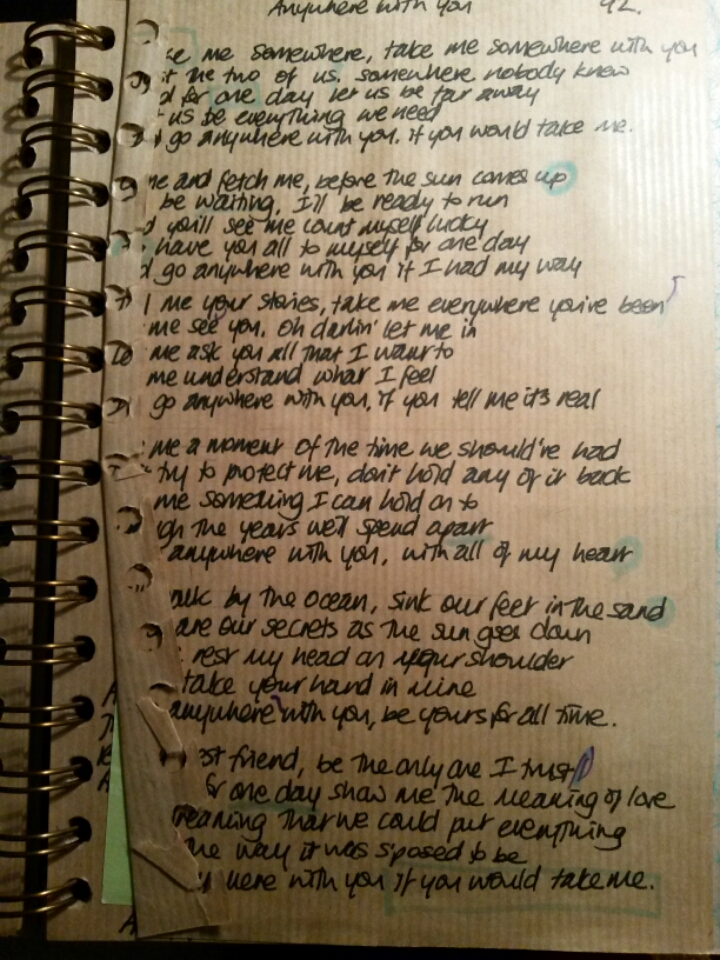 Anywhere with you 42.
ke me somewhere, take me somewhere with you
t the two of us. somewhere nobody knew
d for one day let us be far away
us be everything we need
go anywhere with you. if you would take me.
me and fetch me, before the sun comes up
be waiting, I'll be ready to run
d you'll see me count myself lucky
have you all to myself for one day
d go anywhere with you if I had my way
l me your stories, take me everywhere you've been
me see you. Oh darlin' let me in
me ask you all that I want to
me understand what I feel
go anywhere with you, if you tell me it's real
me a moment of the time we should've had
try to protect me, don't hold any of it back
me something I can hold on to
gh the years we'll spend apart
anywhere with you, with all of my heart
alk by the ocean, sink our feet in the sand
are our secrets as the sun goes down
rest my head on your shoulder
take your hand in mine
anywhere with you, be yours for all time.
st friend, be the only one I trust
for one day show me the meaning of love
reaming that we could put everything
the way it was s'posed to be
here with you if you would take me.